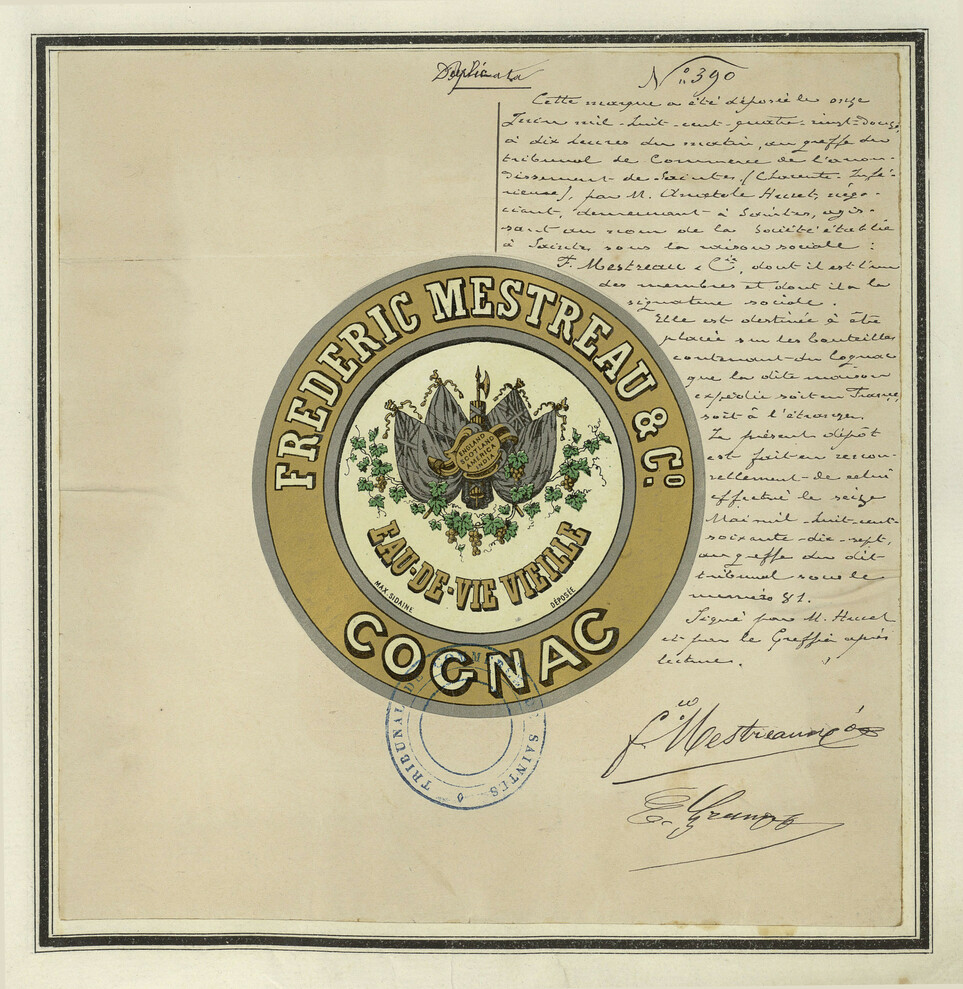 Duplicata
N° 390
Cette marque a été déposée le onze
Juin mil-huit-cent-quatre-vingt-douze,
à dix heures du matin, au greffe du
tribunal de Commerce de l'arron-
dissement de Saintes, (Charente-Infé-
rieure), par M. Anatole Huet, négo-
ciant, demeurant à Saintes, agis-
sant au nom de la Société établie
à Saintes sous la raison sociale :
F. Mestreau & Cie, dont il est l'un
des membres et dont il a la
signature sociale.
Elle est destinée à être
placée sur les bouteilles
contenant du Cognac
que la dite maison
expédie soit en France,
soit à l'étranger.
Le présent dépôt
est fait en renou-
vellement de celui
effectué le seize
Mai mil-huit-cent-
soixante-dix-sept,
au greffe du dit
tribunal sous le
numéro 81.
Signé par M. Huet
et par le Greffier après
lecture.
FREDERIC MESTREAU & Co.
ENGLAND
SCOTLAND
AMERICA
INDIA
EAU-DE-VIE VIEILLE
MAX. SIDAINE
DÉPOSÉE
COGNAC
TRIBUNAL DE COMMERCE DE SAINTES
F. Mestreau & Cie